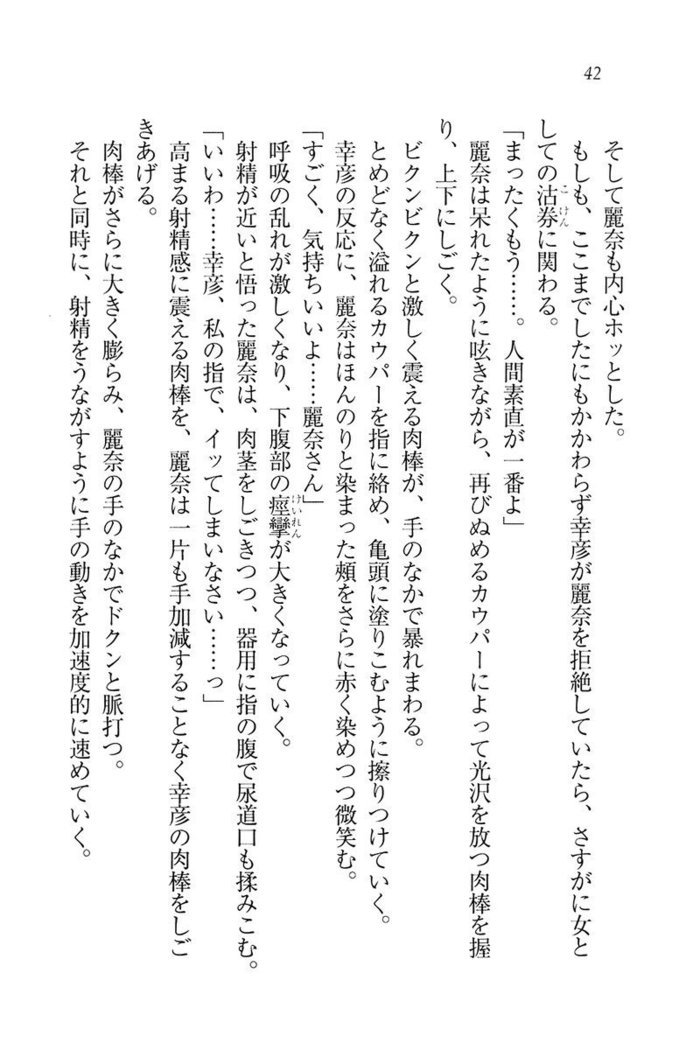 42
そして麗奈も内心ホッとした。
もしも、ここまでしたにもかかわらず幸彦が麗奈を拒絶していたら、さすがに女と
しての沽券に関わる。
こけん
「まったくもう……。人間素直が一番よ」
麗奈は呆れたように呟きながら、再びぬめるカウパーによって光沢を放つ肉棒を握
り、上下にしごく。
ビクンビクンと激しく震える肉棒が、手のなかで暴れまわる。
とめどなく溢れるカウパーを指に絡め、亀頭に塗りこむように擦りつけていく。
幸彦の反応に、麗奈はほんのりと染まった頬をさらに赤く染めつつ微笑む。
「すごく、気持ちいいよ……麗奈さん」
呼吸の乱れが激しくなり、下腹部の痙攣が大きくなっていく。
けいれん
射精が近いと悟った麗奈は、肉茎をしごきつつ、器用に指の腹で尿道口も揉みこむ。
「いいわ……幸彦、私の指で、イッてしまいなさい……っ」
高まる射精感に震える肉棒を、麗奈は一片も手加減することなく幸彦の肉棒をしご
きあげる。
肉棒がさらに大きく膨らみ、麗奈の手のなかでドクンと脈打つ。
それと同時に、射精をうながすように手の動きを加速度的に速めていく。